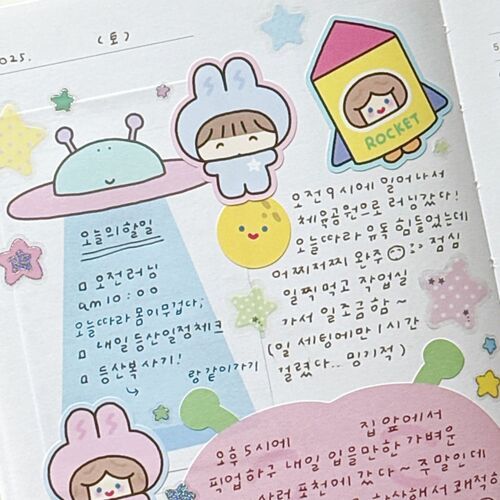 2025.
(토)
ROCKET
오늘의 할일
오전러닝
am10:00
오늘따라 몸이 무겁다;
내일 등산일정체크
등산복사기!
랑 같이가기
오전9시에 일어나서
체육공원으로 러닝갔다!
오늘따라 유독 힘들었는데
어찌저찌 완주 점심
일찍먹고 작업실
가서 일조금함~
(일 세팅에만 1시간
걸렸다.. 밍기적)
오후5시에 집앞에서
픽업하구 내일 입을만한 가벼운
사러 포천에 갔다~ 주말인데